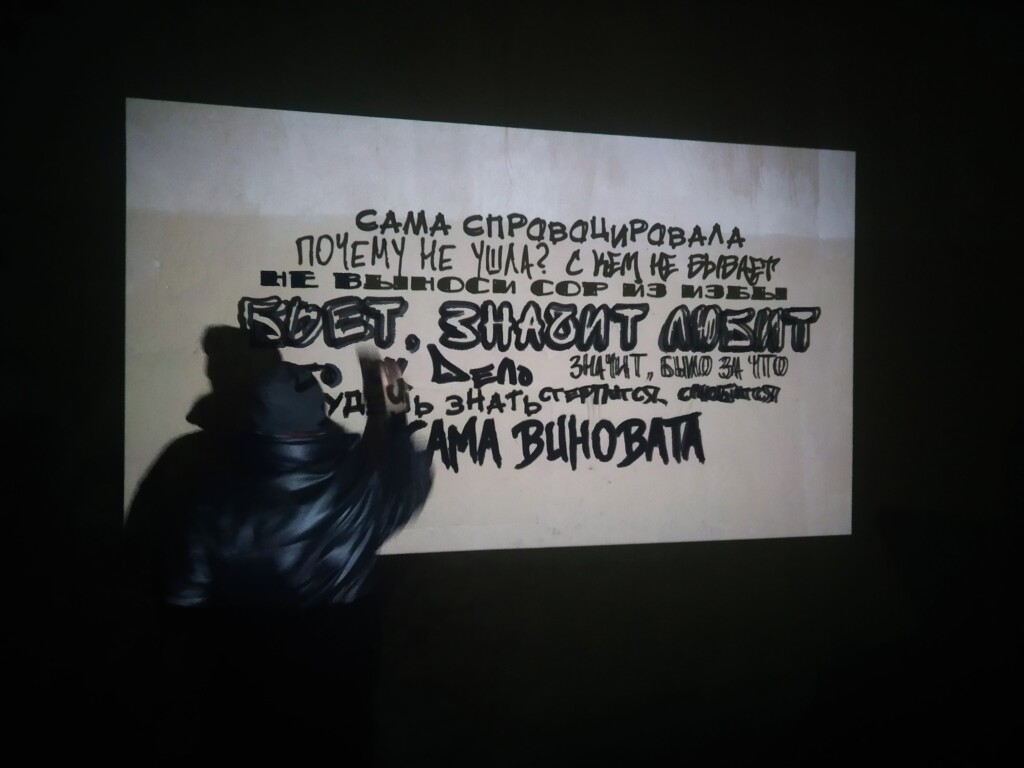 САМА СПРОВОЦИРОВАЛА
ПОЧЕМУ НЕ УШЛА? С КЕМ НЕ БЫВАЕТ
НЕ ВЫНОСИ СОР ИЗ ИЗБЫ
БЬЕТ, ЗНАЧИТ ЛЮБИТ
ДЕЛО ЗНАЧИТ, БЫЛО ЗА ЧТО
ЗНАТЬ СТЕРПИТСЯ, СЛЮБИТСЯ
АМА ВИНОВАТА